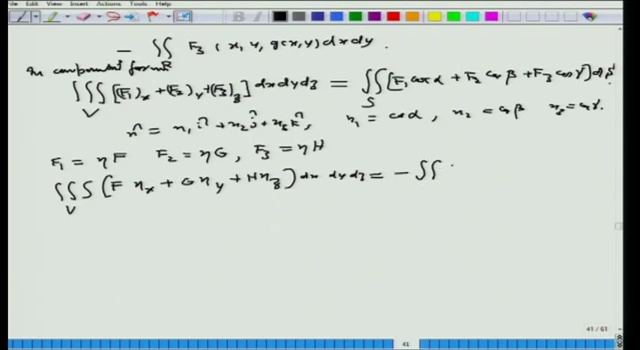 File Edit View Insert Actions Tools Help
- ∬_R F₃(x, y, g(x,y)) dx dy.
In component form
∭_V [(F₁)_x + (F₂)_y + (F₃)_z] dx dy dz = ∬_S [F₁ cos α + F₂ cos β + F₃ cos γ] ds
n̂ = n₁ î + n₂ ĵ + n₃ k̂, n₁ = cos α, n₂ = cos β n₃ = cos γ.
F₁ = ηF F₂ = ηG, F₃ = ηH
∭_V (F η_x + G η_y + H η_z) dx dy dz = - ∬
41 / 61
41